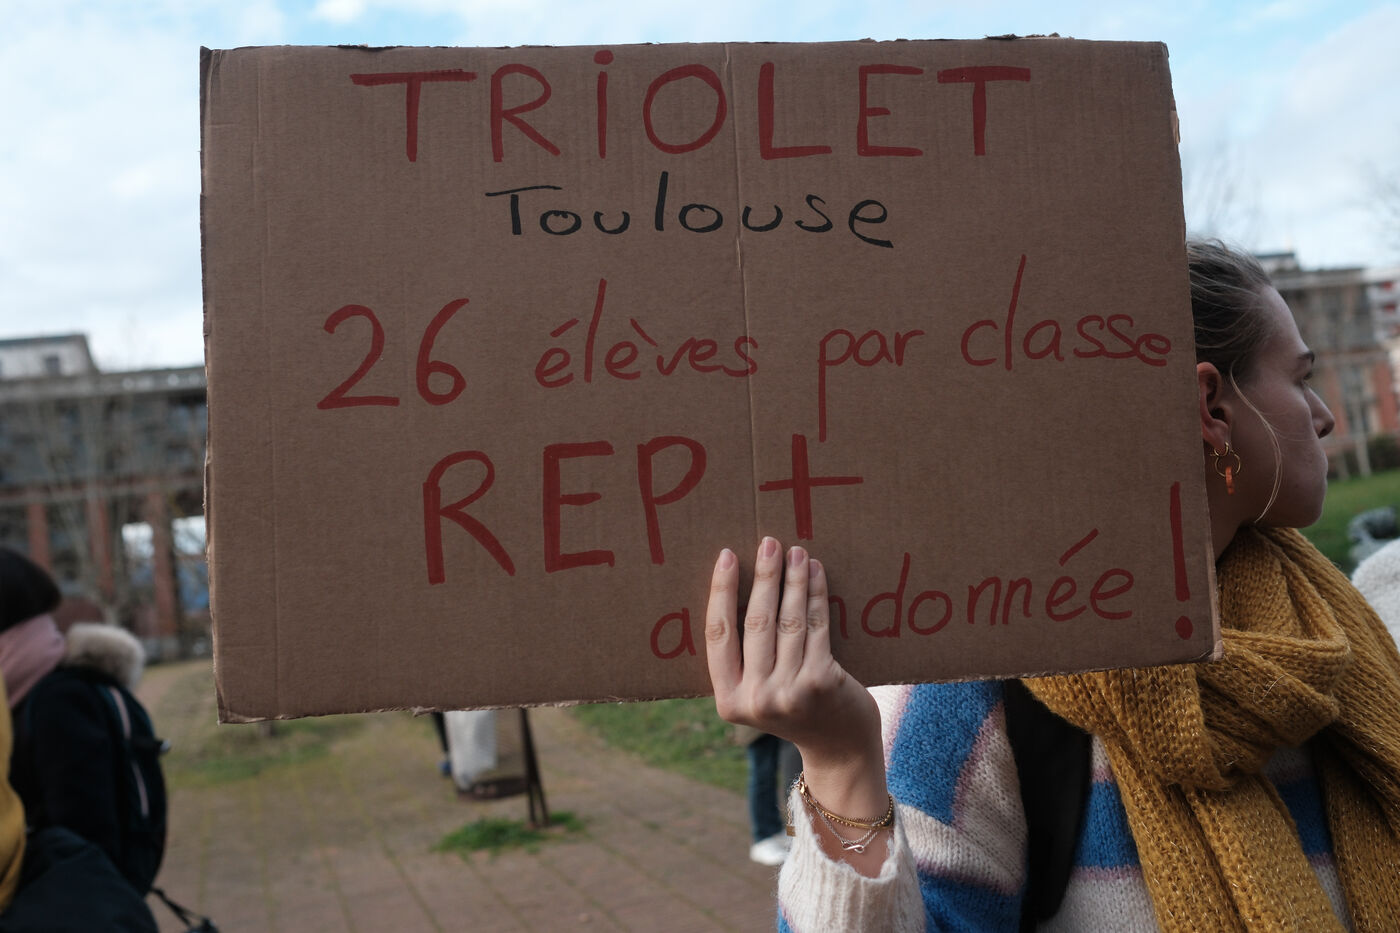 TRIOLET
Toulouse
26 élèves par classe
REP+
!